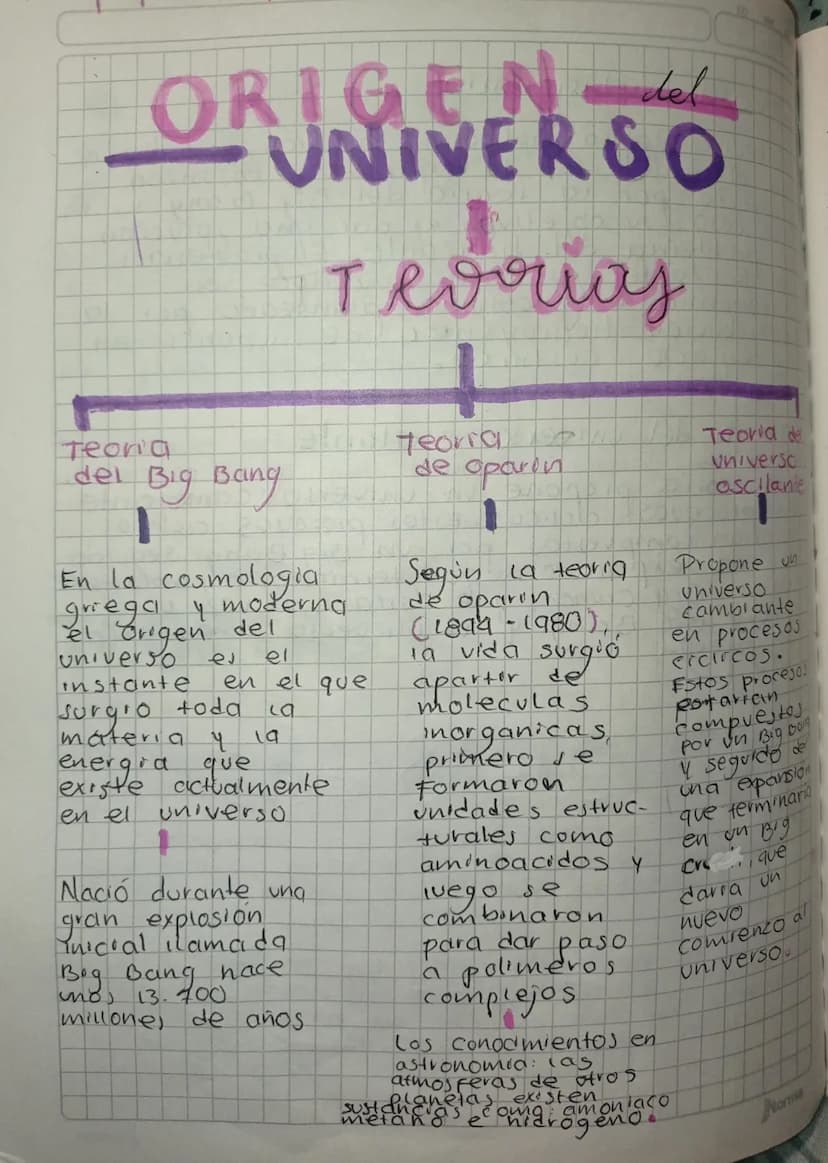 ORIGEN del
UNIVERSO
Teorias
Teoria
del Big Bang
En la cosmologia
griega y moderna
el origen del
universo es el
instante en el que
surgio toda la
materia y la
energia que
existe actualmente
en el universo
Nació durante una
gran explosión
inicial llamada
Big Bang hace
unos 13.700
millones de años
Teoria
de oparin
Según la teoria
de oparin
(1894-1980),
la vida surgió
apartir de
moleculas
inorganicas,
primero se
formaron
unidades estruc-
turales como
aminoacidos y
luego se
combinaron
para dar paso
a polimeros
complejos
Los conocimientos en
astronomia: las
atmosferas de otros
planetas existen
sustancias como: amoniaco
metano e hidrogeno.
Teoria de
universo
ascilante
Propone un
universo
cambiante
en procesos
ciclicos.
Estos procesos
estarian
compuestos
por un Big Bang
y seguido de
una expansion
que terminaria
en un Big
que
daria un
nuevo
comienzo al
universo.
Norma